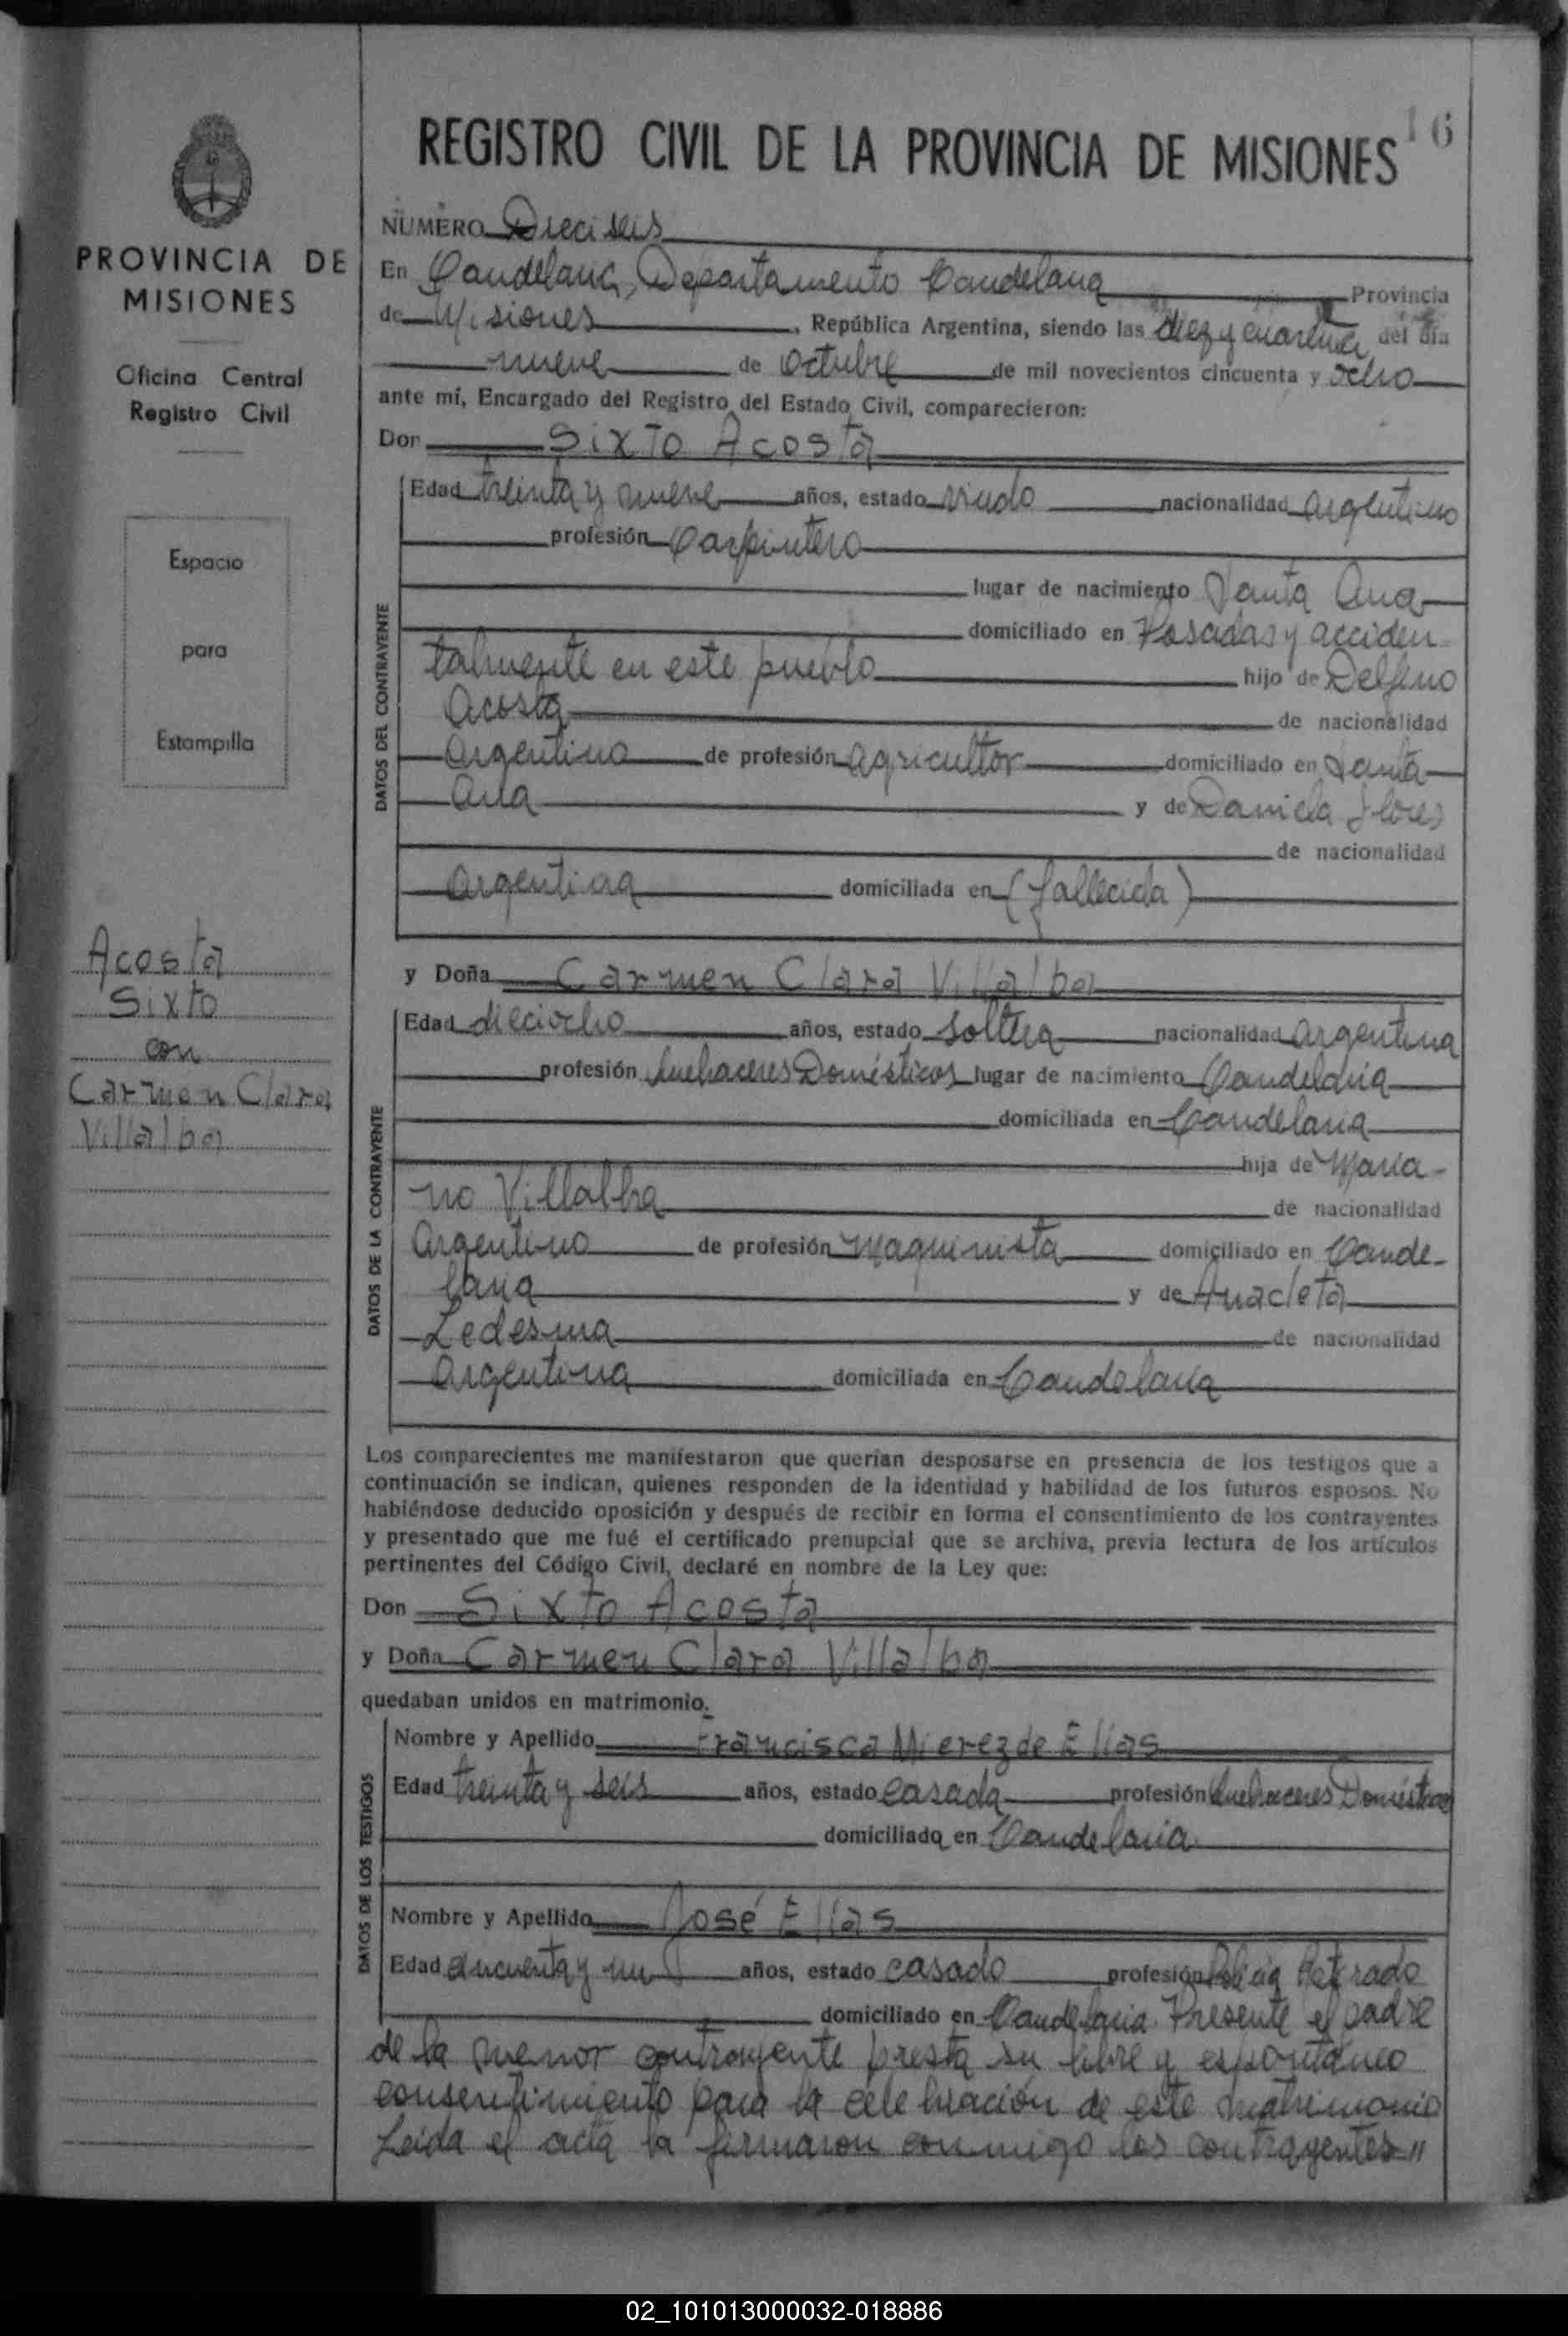 REGISTRO CIVIL DE LA PROVINCIA DE MISIONES 16
PROVINCIA DE
MISIONES
Oficina Central
Registro Civil
Espacio
para
Estampilla
Acosta
Sixto
con
Carmen Clara
Villalba
NÚMERO Dieciseis
En Candelaria, Departamento Candelaria Provincia
de Misiones, República Argentina, siendo las diez y cuarenta del día
nueve de Octubre de mil novecientos cincuenta y ocho
ante mí, Encargado del Registro del Estado Civil, comparecieron:
Don Sixto Acosta
DATOS DEL CONTRAYENTE
Edad treinta y nueve años, estado viudo nacionalidad argentino
profesión Carpintero
lugar de nacimiento Santa Ana
domiciliado en Posadas y acciden
talmente en este pueblo hijo de Delfino
Acosta de nacionalidad
Argentino de profesión agricultor domiciliado en Santa
Ana y de Daniela Flores
de nacionalidad
argentina domiciliada en (fallecida)
y Doña Carmen Clara Villalba
DATOS DE LA CONTRAYENTE
Edad dieciocho años, estado soltera nacionalidad argentina
profesión Quehaceres Domésticos lugar de nacimiento Candelaria
domiciliada en Candelaria
hija de Maria-
no Villalba de nacionalidad
Argentino de profesión maquinista domiciliado en Cande-
laria y de Anacleta
Ledesma de nacionalidad
Argentina domiciliada en Candelaria
Los comparecientes me manifestaron que querían desposarse en presencia de los testigos que a
continuación se indican, quienes responden de la identidad y habilidad de los futuros esposos. No
habiéndose deducido oposición y después de recibir en forma el consentimiento de los contrayentes
y presentado que me fué el certificado prenupcial que se archiva, previa lectura de los artículos
pertinentes del Código Civil, declaré en nombre de la Ley que:
Don Sixto Acosta
y Doña Carmen Clara Villalba
quedaban unidos en matrimonio.
DATOS DE LOS TESTIGOS
Nombre y Apellido Francisca Mierez de Elías
Edad treinta y seis años, estado casada profesión Quehaceres Domésticos
domiciliado en Candelaria
Nombre y Apellido José Elías
Edad cincuenta y un años, estado casado profesión Policia Retirado
domiciliado en Candelaria. Presente el padre
de la menor contrayente presta su libre y espontáneo
consentimiento para la celebración de este matrimonio
Leida el acta la firmaron conmigo los contrayentes"
02_101013000032-018886